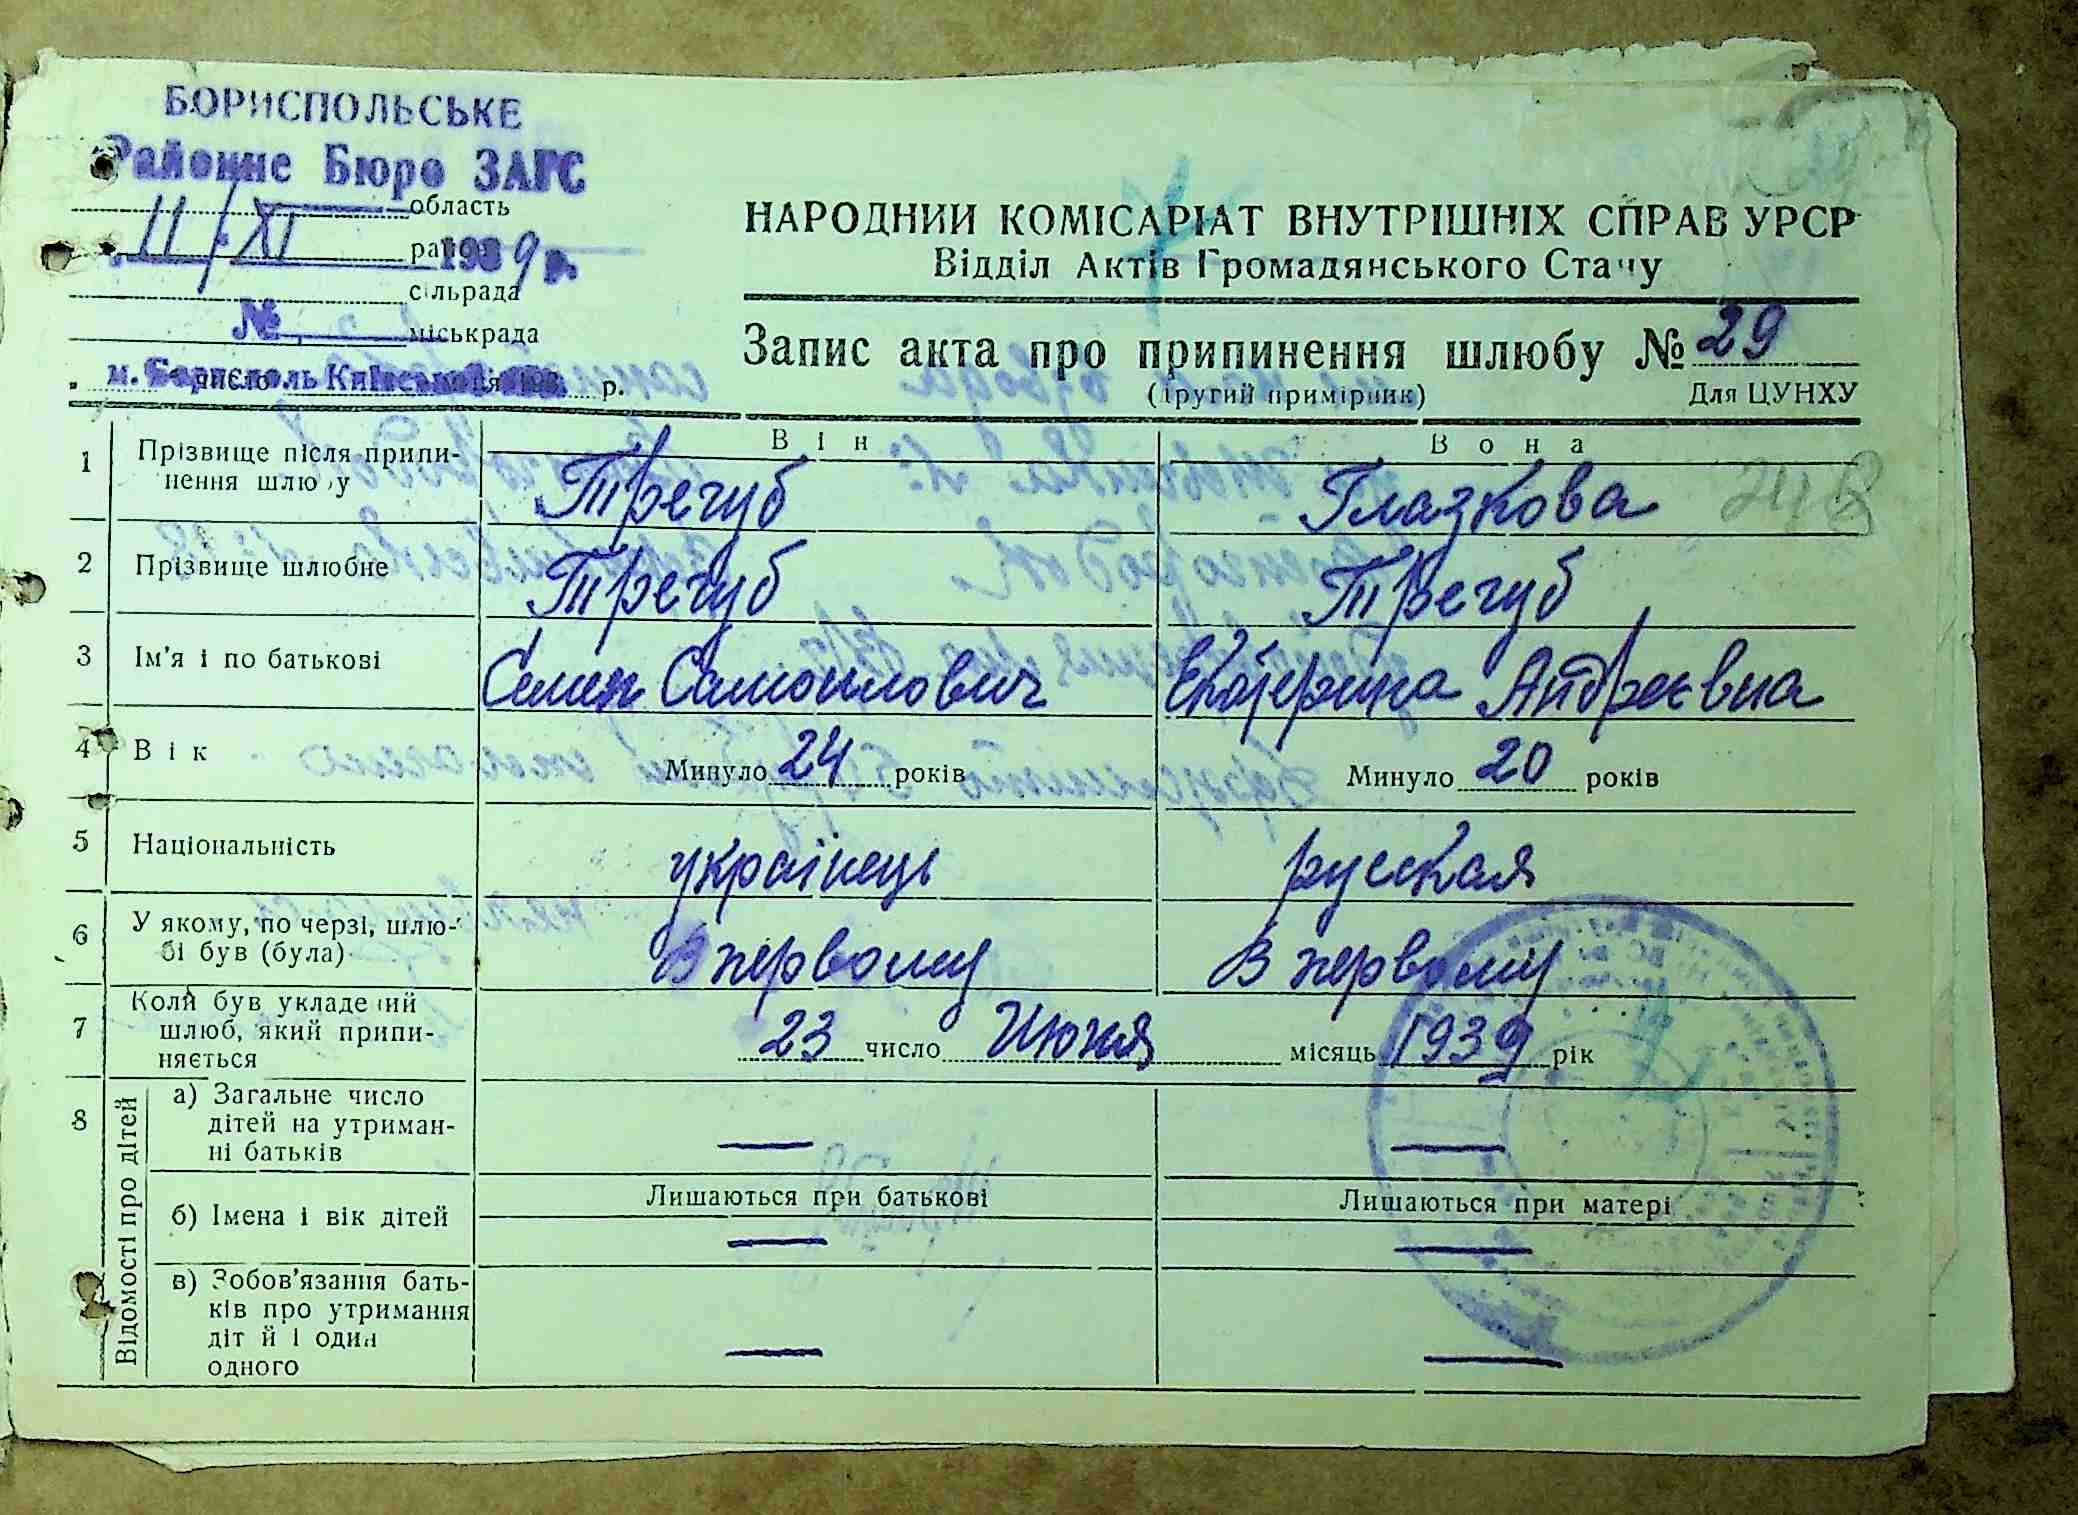 БОРИСПОЛЬСЬКЕ
Районне Бюро ЗАГС
область
11/XI 1939 р.
сільрада
№ міськрада
м. Бориспіль число р.
НАРОДНИЙ КОМІСАРІАТ ВНУТРІШНІХ СПРАВ УРСР
Відділ Актів Громадянського Стану
Запис акта про припинення шлюбу № 29
(другий примірник) Для ЦУНХУ
Він Вона
1 Прізвище після припинення шлюбу Трегуб Глазкова 248
2 Прізвище шлюбне Трегуб Трегуб
3 Ім'я і по батькові Семен Самоилович Екатерина Андреевна
4 Вік Минуло 24 років Минуло 20 років
5 Національність українець русская
6 У якому, по черзі, шлюбі був (була) В первому В первому
7 Коли був укладений шлюб, який припиняється 23 число Июня місяць 1939 рік
8 Відомості про дітей
а) Загальне число дітей на утриманні батьків — —
б) Імена і вік дітей Лишаються при батькові — Лишаються при матері —
в) Зобов'язання батьків про утримання дітей і один одного — —